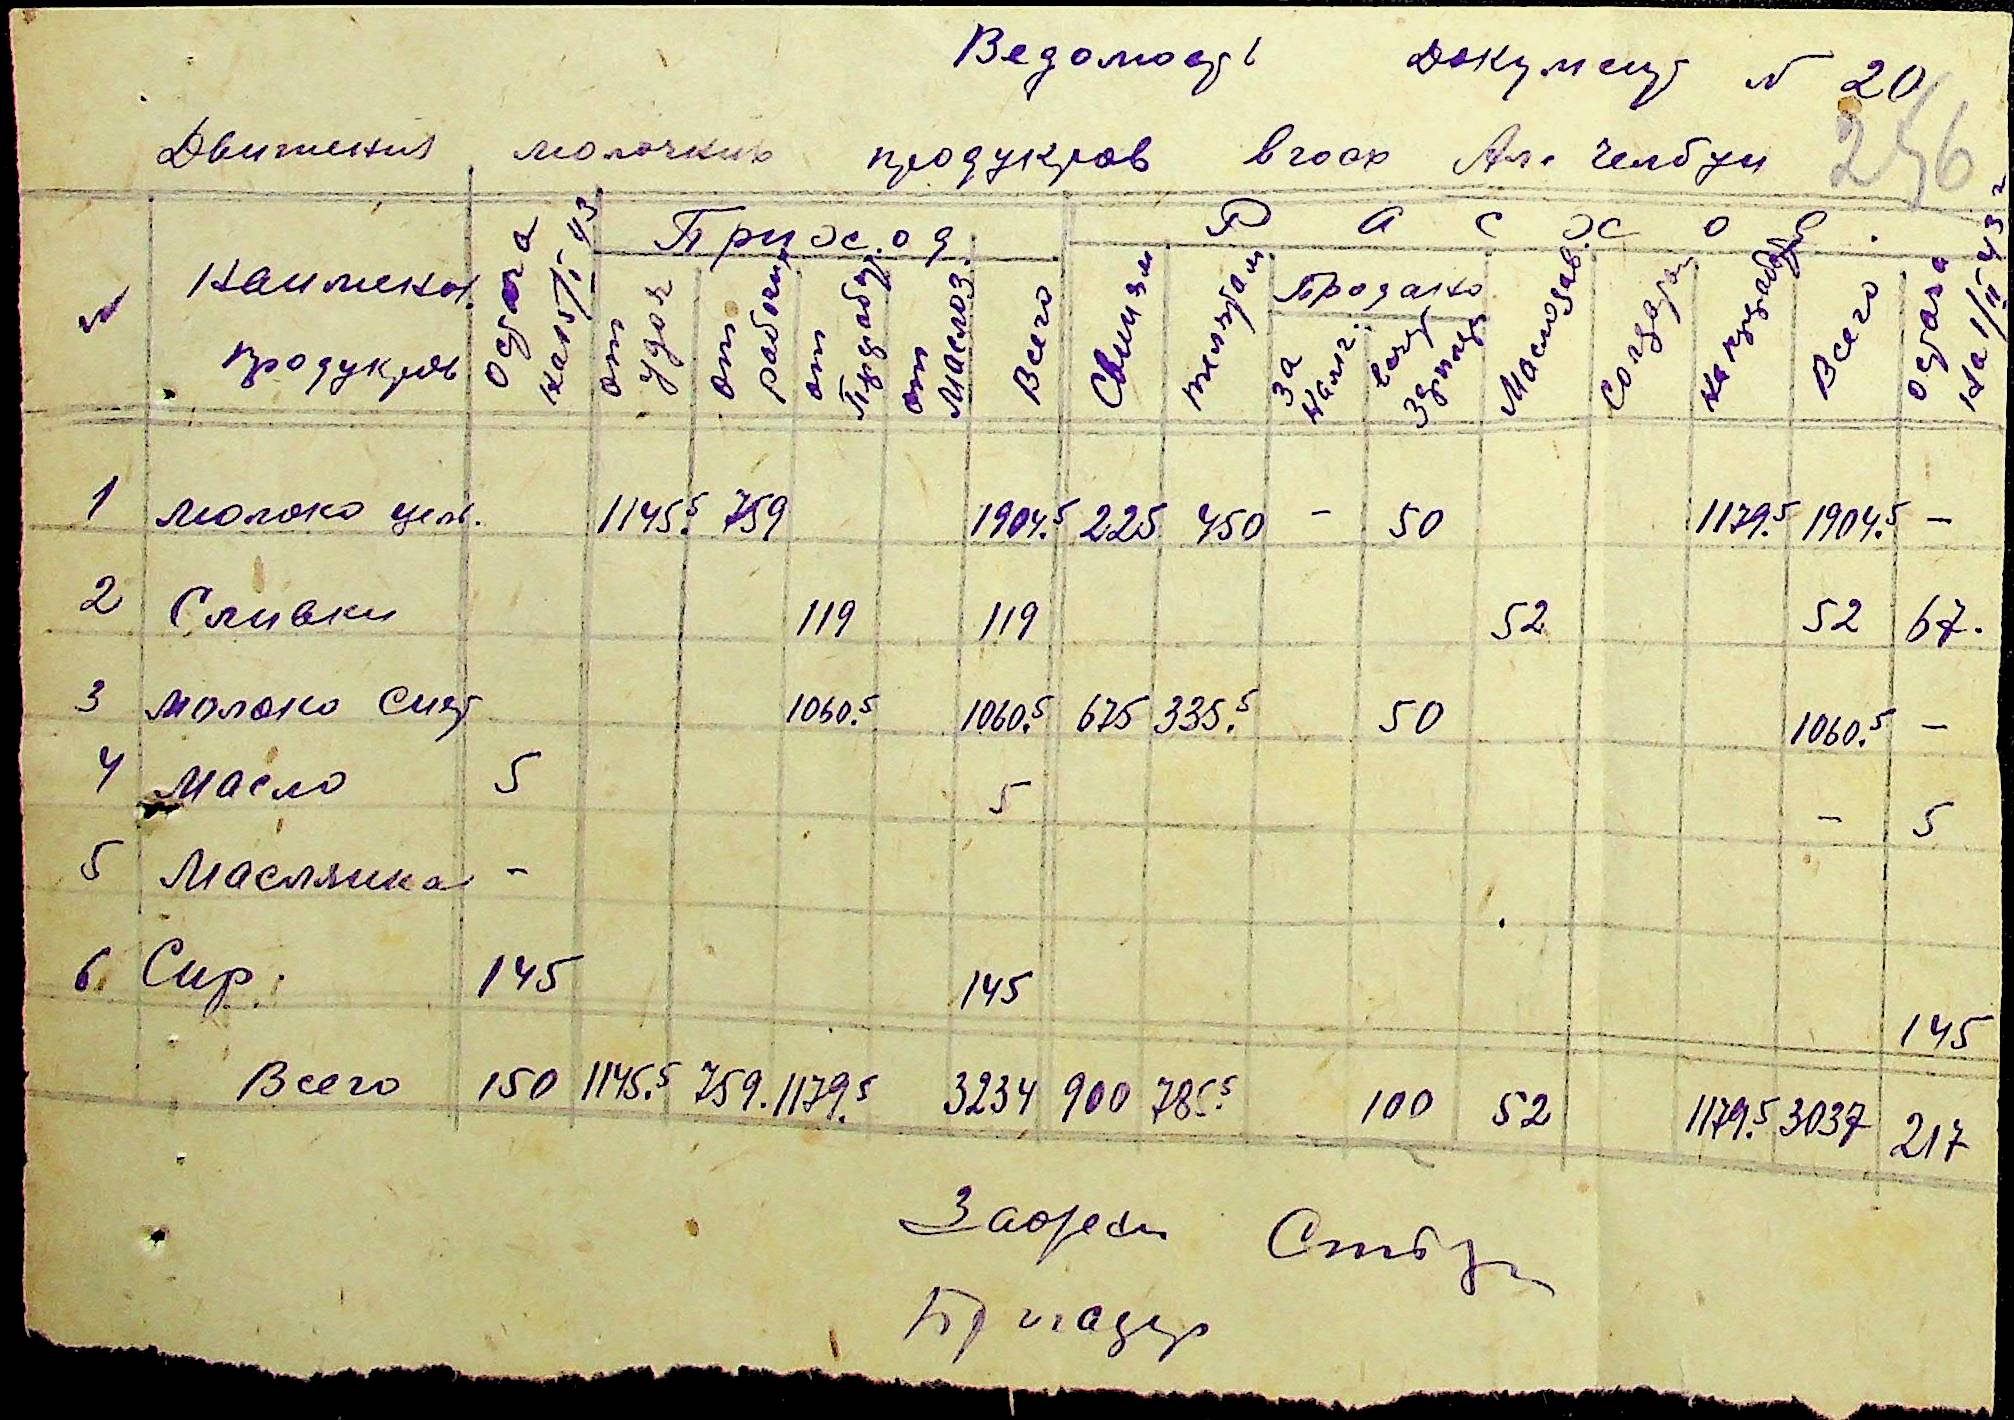 Ведомость Документ № 20
256
Движения молочних продуктов в госх Ам. Челбури
№ Наименов. продуктов Остача на 1/I-43 Приход Расход. Остача на 1/II-43 г
от удоя от рабочих от Пераб. от Маслоз. Всего Свиням телятам Продано Маслозав. Солдатам На переработ Всего
за налг.
1 молоко цель. 1145.5 759 1904.5 225 450 - 50 1179.5 1904.5 -
2 Сливки 119 119 52 52 67.
3 молоко Снят 1060.5 1060.5 675 335.5 50 1060.5 -
4 Масло 5 5 - 5
5 Маслянка -
6. Сир. 145 145 145
Всего 150 1145.5 759. 1179.5 3234 900 785.5 100 52 1179.5 3037 217